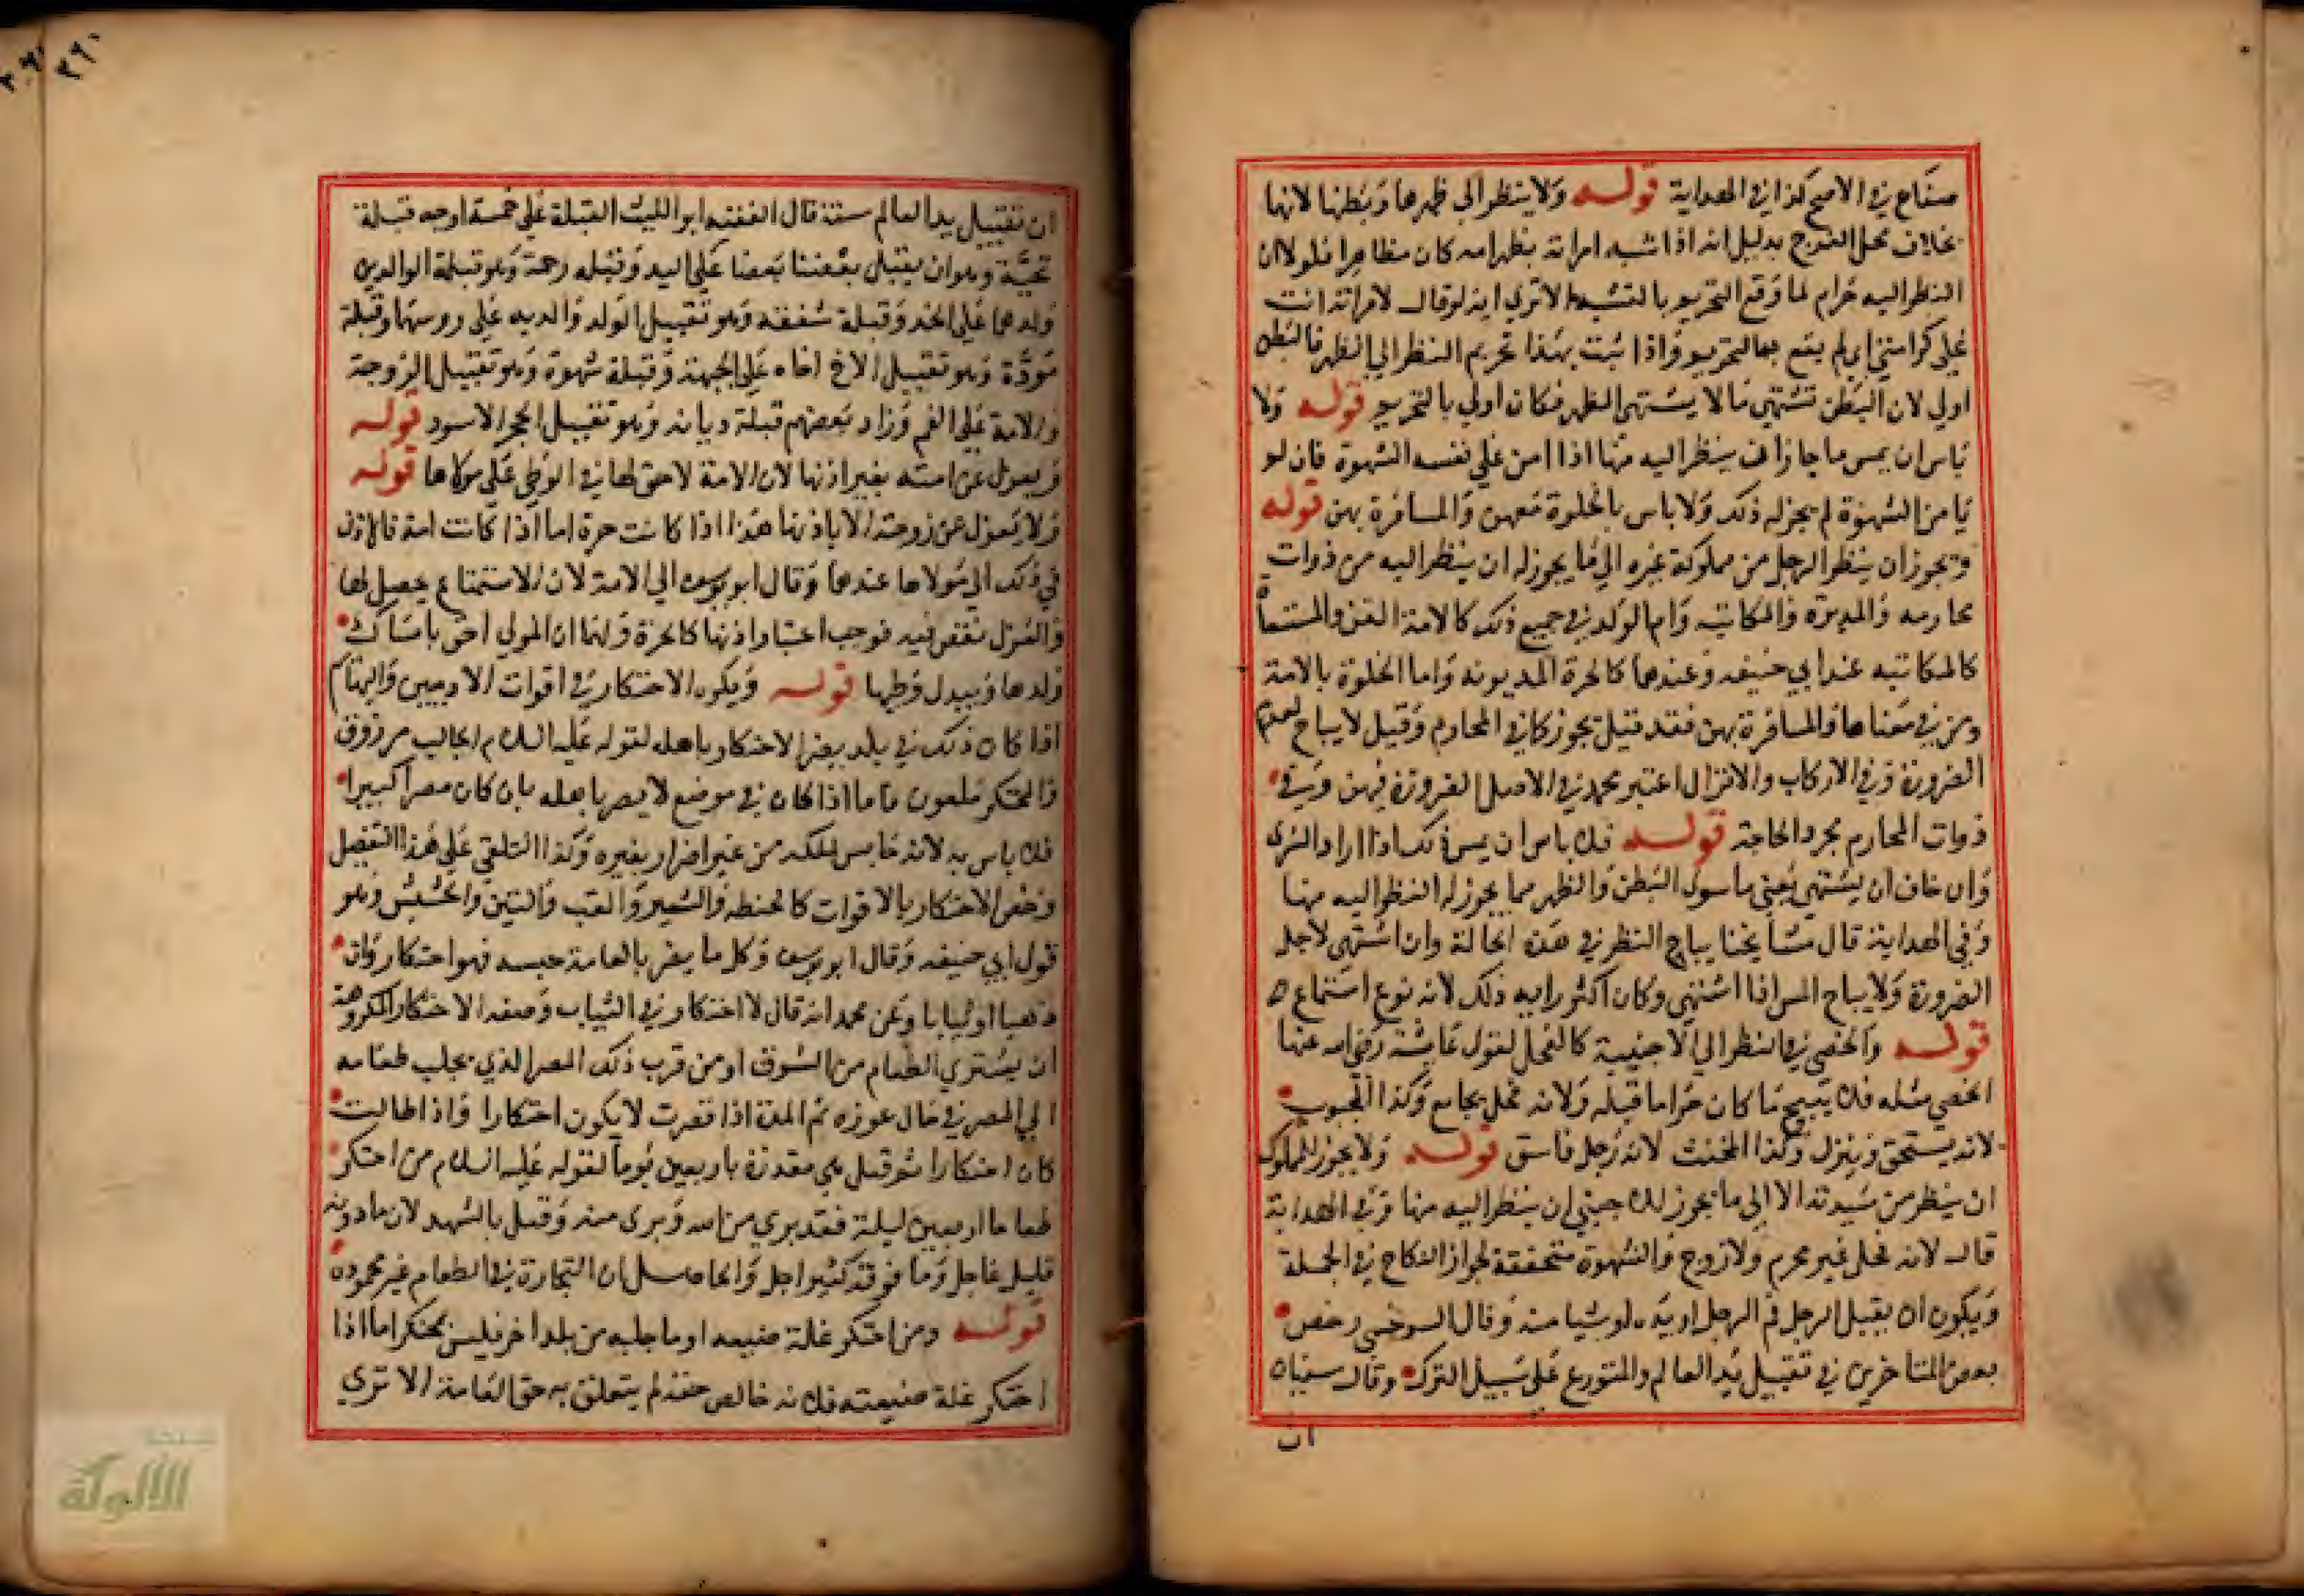 صناع في الاصح كذا في الهداية قوله ولا ينظر الي ظهرها وبطنها لانها
بخلاف محل الفرج بدليل انه اذا شبه امراته بظهر امه كان مظاهرا فلولا ان
النظر اليه حرام لما وقع التحريم بالتشبيه الا تري انه لو قال لامراته انت
علي كراس امي لم يقع بها التحريم واذا ثبت بهذا تحريم النظر الي الظهر فالبطن
اولي لان البطن تشتهي ما لا يشتهي الظهر فكان اولي بالتحريم قوله ولا
باس ان يمس ما جاز ان ينظر اليه منها اذا امن علي نفسه الشهوة فان لو
يامن الشهوة لم يجز له ذلك ولا باس بالخلوة معهن والمسافرة بهن قوله
ويجوز ان ينظر الرجل من مملوكة غيره الي ما يجوز له ان ينظر اليه من ذوات
محارمه والمدبرة والمكاتبه وام الولد في جميع ذلك كالامة القن والمستسعاة
كالمكاتبه عند ابي حنيفه وعندهما كالحرة المديونه واما الخلوة بالامة
ومن في معناها والمسافرة بهن فقد قيل يجوز كما في المحارم وقيل لا يباح لعدم
الضرورة وفي الاركاب والانزال اعتبر محمد في الاصل الضرورة فيهن وفي
ذوات المحارم مجرد الحاجة قوله فلا باس ان يمس ذلك اذا اراد الشري
وان خاف ان يشتهي يعني ما سوي البطن والظهر مما يجوز له النظر اليه منها
وفي الهداية قال مشايخنا يباح النظر في هذه الحالة وان اشتهي لاجل
الضرورة ولا يباح المس اذا اشتهي وكان اكثر رايه ذلك لانه نوع استمتاع
قوله والخصي في النظر الي الاجنبية كالفحل لقول عائشة رضي الله عنها
الخصي مثله فلا يبيح ما كان حراما قبله ولانه فحل يجامع وكذا المجبوب
لانه يستحق وينزل وكذا المخنث لانه رجل فاسق قوله ولا يجوز للمملوك
ان ينظر من سيدته الا الي ما يجوز للاجنبي ان ينظر اليه منها وفي الهداية
قال لانه فحل غير محرم ولا زوج والشهوة متحققة لجواز النكاح في الجملة
ويكره ان يقبل الرجل فم الرجل او يده او شيا منه وقال السرخسي رخص
بعض المتاخرين في تقبيل يد العالم والمتورع علي سبيل التبرك وقال سفيان
ان
ان تقبيل يد العالم سنة قال الفقيه ابو الليث القبلة علي خمسة اوجه قبلة
تحية وهو ان يقبل بعضنا بعضا علي اليد وقبلة رحمة وهو قبلة الوالدين
ولدهما علي الخد وقبلة شفقه وهو تقبيل الولد والديه علي روسهما وقبلة
مودة وهو تقبيل الاخ اخاه علي الجبهة وقبلة شهوة وهو تقبيل الزوجة
والامة علي الفم وزاد بعضهم قبلة ديانه وهو تقبيل الحجر الاسود قوله
ويعزل عن امته بغير اذنها لان الامة لا حق لها في الوطي علي مولاها قوله
ولا يعزل عن زوجته الا باذنها هذا اذا كانت حرة اما اذا كانت امة فالاذن
في ذلك الي مولاها عندهما وقال ابو يوسف الي الامة لان الاستمتاع يحصل لها
والعزل نقص فيه فوجب اعتبار اذنها كالحرة ولهما ان المولي احق بامساك
ولدها وببدل وطيها قوله ويكره الاحتكار في اقوات الادميين والبهائم
اذا كان ذلك في بلد يضر الاحتكار باهله لقوله عليه السلام الجالب مرزوق
والمحتكر ملعون فاما اذا كان في موضع لا يضر باهله بان كان مصرا كبيرا
فلا باس به لانه حابس لملكه من غير اضرار بغيره وكذا التلقي علي هذا التفصيل
وخص الاحتكار بالاقوات كالحنطة والشعير والقت والتبن والحشيش وهو
قول ابي حنيفه وقال ابو يوسف وكل ما يضر بالعامة حبسه فهو احتكار وان
ذهبا او ثيابا وعن محمد انه قال لا احتكار في الثياب وصفة الاحتكار المكروهة
ان يشتري الطعام من السوق او من قرب ذلك المصر الذي يجلب طعامه
الي المصر في حال عوزه ثم المدة اذا قصرت لا يكون احتكارا واذا طالت
كان احتكارا ثم قيل هي مقدرة باربعين يوما لقوله عليه السلام من احتكر
طعاما اربعين ليلة فقد بري من الله وبري منه وقيل بالشهر لان ما دونه
قليل عاجل وما فوقه كثير اجل والحاصل ان التجارة في الطعام غير محمودة
قوله ومن احتكر غلة ضيعه او ما جلبه من بلد اخر فليس بمحتكر اما اذا
احتكر غلة ضيعته فلانه خالص حقه لم يتعلق به حق العامة الا تري
الألوكة